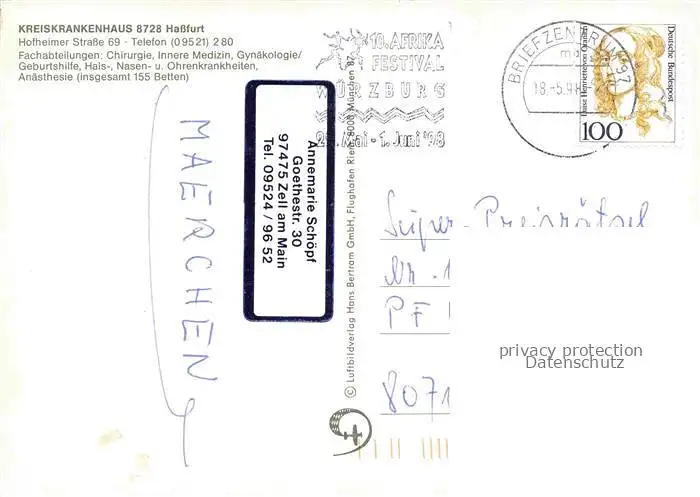 KREISKRANKENHAUS 8728 Haßfurt
Hofheimer Straße 69 - Telefon (0 95 21) 2 80
Fachabteilungen: Chirurgie, Innere Medizin, Gynäkologie/
Geburtshilfe, Hals-, Nasen- u. Ohrenkrankheiten,
Anästhesie (insgesamt 155 Betten)
MAERCHEN
Annemarie Schöpf
Goethestr. 30
97475 Zell am Main
Tel. 09524 / 96 52
© Luftbildverlag Hans Bertram GmbH, Flughafen Riem, 8000 München 87
10. AFRIKA
FESTIVAL
WÜRZBURG
Mai - 1. Juni '98
BRIEFZENTRUM 97
18.-5.98
Deutsche Bundespost
Luise Henriette von Oranien
100
Super-Preisrätsel
Nr. 1
PF
8071
privacy protection
Datenschutz